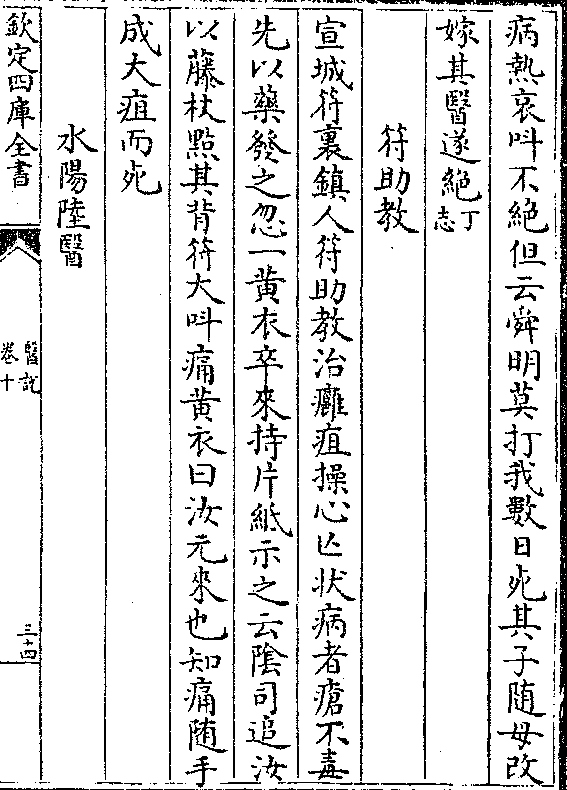 病熱哀叫不絶但云舜明莫打我數日死其子随母改
嫁其醫遂絶丁志
符助教
宣城符裏鎮人符助教治癰疽操心亡状病者瘡不毒
先以藥發之忽一黄衣卒來持片紙示之云隂司追汝
以藤杖㸃其背符大叫痛黄衣曰汝元來也知痛随手
成大疽而死
水陽陸醫
欽定四庫全書
醫説
卷十
三十四